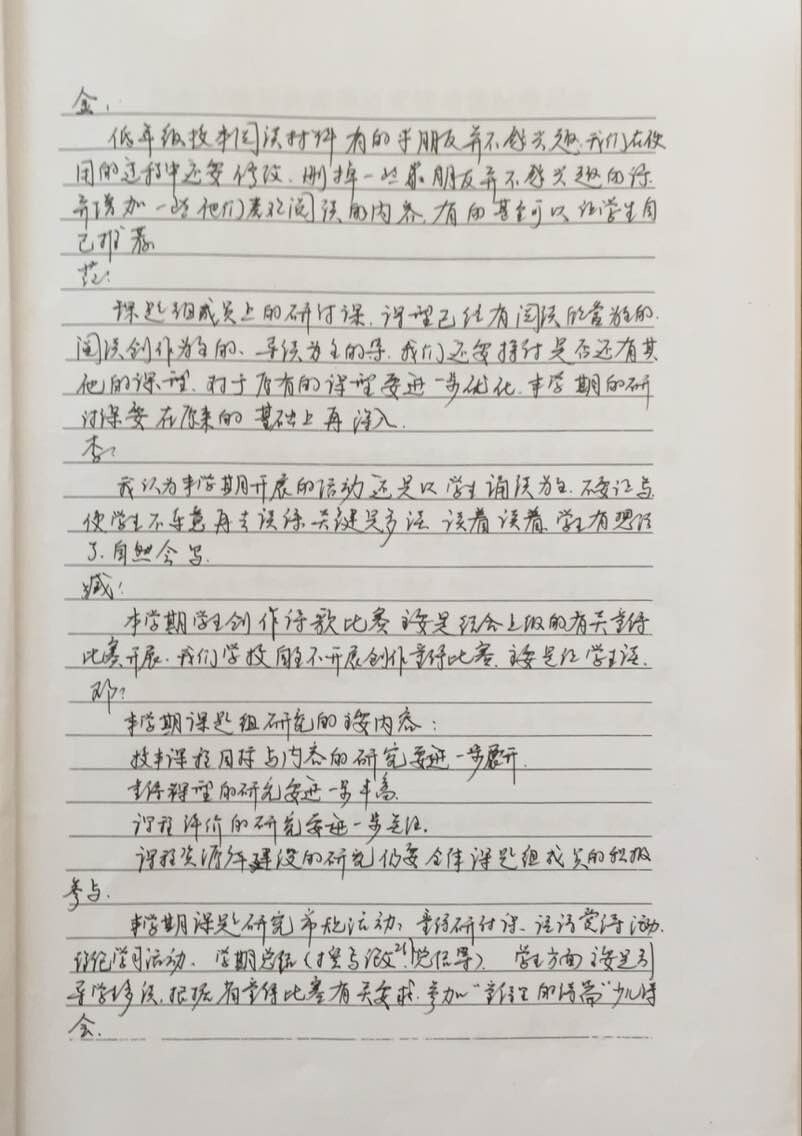 金：
低年级校本阅读材料有的小朋友并不感兴趣,我们在使
用的过程中还要修改.删掉一些小朋友并不感兴趣的诗.
并增加一些他们喜欢阅读的内容,有的甚至可以让学生自
己推荐.
范：
课题组成员上的研讨课,课型已经有阅读欣赏为主的.
阅读创作为主的、导读为主的等.我们还要探讨是否还有其
他的课型.对于原有的课型要进一步优化.本学期的研
讨课要在原来的基础上再深入.
李：
我认为本学期开展的活动还是以学生诵读为主.不要让写
使学生不乐意再去读诗.关键是多读.读着读着,学生有想法
了.自然会写.
臧：
本学期学生创作诗歌比赛主要是结合上级的有关童诗
比赛开展.我们学校自主不开展创作童诗比赛.主要是让学生读.
邓：
本学期课题组研究的主要内容：
校本课程目标与内容的研究要进一步展开.
童诗课型的研究要进一步丰富.
课程评价的研究要进一步关注.
课程资源建设的研究仍要全体课题组成员的积极
参与.
本学期课题研究常规活动：童诗研讨课、活动.
学习活动、学期总结(撰写论文、总结等).学生方面主要是引
导学生多读,根据省童诗比赛有关要求,参加“童话里的诗篇”少儿诗
会.